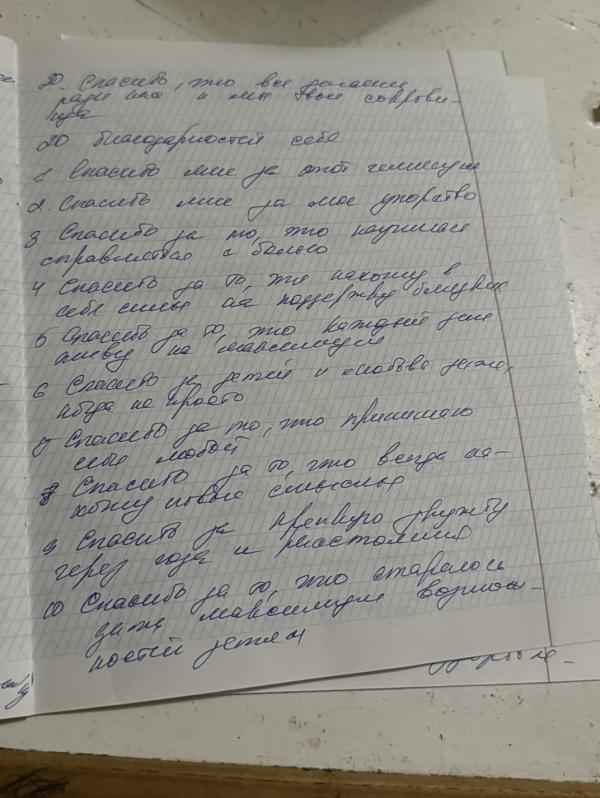 20. Спасибо, что все делаешь
ради нас и мы твои сокрови-
ща
20 благодарностей себе
1 Спасибо мне за этот
2. Спасибо мне за мое упорство
3 Спасибо за то, что научилась
справляться с болью
4 Спасибо за то, что нахожу в
себе силы на поддержку близких
5 Спасибо за то, что каждый день
живу на максимум
6 Спасибо за детей и любовь
когда не просто
7 Спасибо за то, что принимаю
себя любой
8 Спасибо за то, что всегда на-
хожу новые смыслы
9 Спасибо за крепкую дружбу
через года и расстояния
10 Спасибо за то, что стараюсь
дать максимум возмож-
ностей детям